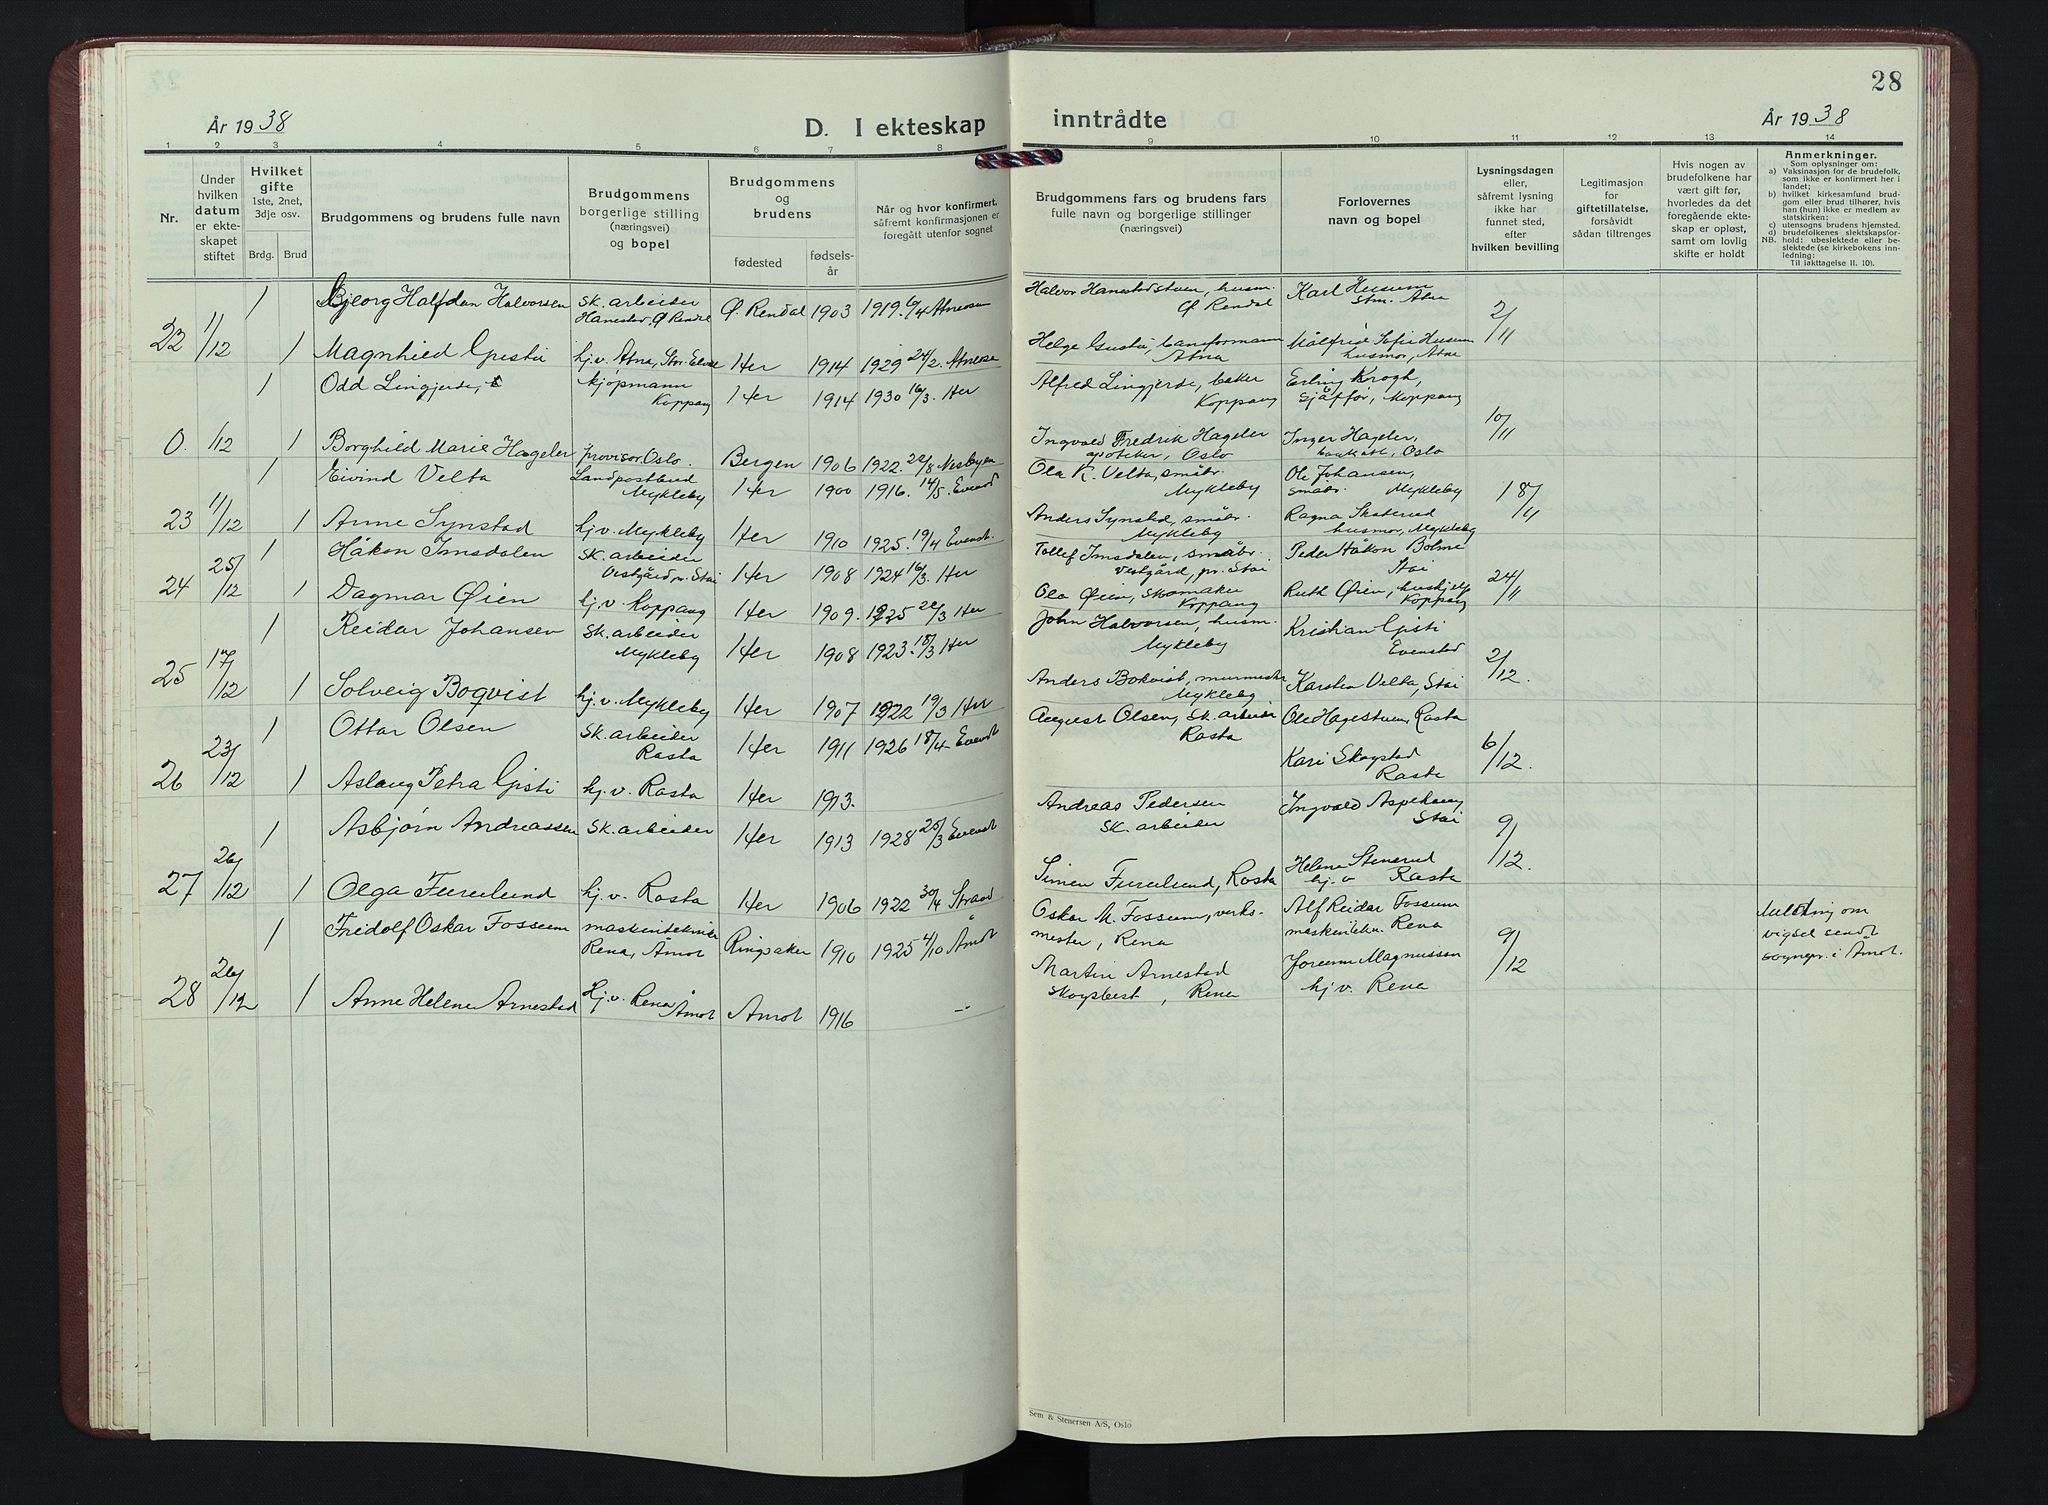 28
År 1938
D. I ekteskap
inntrådte
År 1938
1 2 3 4 5 6 7 8 9 10 11 12 13 14
Nr.
Under
hvilken
datum
er ekte-
skapet
stiftet
Hvilket
gifte
1ste, 2net,
3dje osv.
Brdg.
Brud
Brudgommens og brudens fulle navn
Brudgommens
borgerlige stilling
(næringsvei)
og bopel
Brudgommens
og
brudens
fødested
fødsels-
år
Når og hvor konfirmert,
såfremt konfirmasjonen er
foregått utenfor sognet
Brudgommens fars og brudens fars
fulle navn og borgerlige stillinger
(næringsvei)
Forlovernes
navn og bopel
Lysningsdagen
eller,
såfremt lysning
ikke har
funnet sted,
efter
hvilken bevilling
Legitimasjon
for
giftetillatelse,
forsåvidt
sådan tiltrenges
Hvis nogen av
brudefolkene har
vært gift før,
hvorledes da det
foregående ekte-
skap er opløst,
samt om lovlig
skifte er holdt
Anmerkninger.
Som oplysninger om:
a) Vaksinasjon for de brudefolk,
som ikke er konfirmert her i
landet;
b) hvilket kirkesamfund brud-
gom eller brud tilhører, hvis
han (hun) ikke er medlem av
statskirken;
c) utensogns brudens hjemsted.
d) brudefolkenes slektskapsfor-
NB. hold: ubeslektede eller be-
slektede (se kirkebokens inn-
ledning:
Til iakttagelse II. 10).
1 Bjeorg Halfdan Halvorsen sk. arbeider Ø. Rendal 1903 1919. 6/4 Atneosen Halvor Hanestadstuen, husm. Karl Husum 2/11
Hanestad, Ø Rendal Ø. Rendal stm. Atna
22 11/12 1 Magnhild Gjesti hj.v. Atna, Her 1914 1929 24/2. Atneose Helge banformann Målfrid Sofie Husum
Atna husmor, Atna
1 Odd Lingjerde, kjøpmann Her 1914 1930 16/3. Her Alfred Lingjerde, baker Erling Krogh, 10/11
Koppang Koppang sjåfför, Koppang
0. 1/12 1 Borghild Marie Hageler provisor. Oslo. Bergen 1906 1922. 22/8 Nesbyen Ingvald Fredrik Hageler Inger Hageler,
apoteker, Oslo Oslo
1 Eivind Velta Landpostbud Her 1900 1916. 14/5. Evenst Ola K. Velta, småbr. Ole Johansen, 18/11
Mykleby Mykleby småbr. Mykleby
23 11/12 1 Anne Synstad hj.v. Mykleby Her 1910 1925. 19/4 Evenst. Anders Synstad, småbr. Ragna Skaterud
Mykleby husmor, Mykleby
1 Håkon Imsdalen sk. arbeider Her 1908 1924 16/3. Her Tollef Imsdalen, småbr. Peder Håkon Bolme 24/11
Vestgård, pr. Stai Vestgård, pr. Stai Stai
24 25/12 1 Dagmar Øien hj.v. Koppang Her 1909. 1925 22/3 Her Ola Øien, skomaker Ruth Øien, hushjelp
Koppang Koppang
1 Reidar Johansen sk. arbeider Her 1908 1923. 18/3 Her John Halvorsen, husm. Kristian Gjesti 2/12.
Mykleby Mykleby Evenstad
25 17/12 1 Solveig Boqvist hj.v. Mykleby Her 1907 1922 19/3 Her Anders Bokvist, murmester Karsten Velta, Stai
Mykleby
1 Ottar Olsen sk. arbeider Her 1911 1926 18/4 Evenst August Olsen, sk. arbeider Ole Hagestuen, Rasta 6/12.
Rasta Rasta
26 23/12 1 Aslaug Petra Gjesti hj.v. Rasta Her 1913. Kari Skogstad
Rasta
1 Asbjørn Andreassen sk. arbeider Her 1913 1928 25/3 Evenst Andreas Pedersen Ingvald Aspehaug 9/12.
sk. arbeider Stai
27 26/12 1 Olga Furulund hj.v. Rasta Her 1906 1922 30/4 Strand Simen Furulund, Rasta Helene Stenerud
hj.v Rasta
1 Fridolf Oskar Fossum maskintekniker Ringsaker 1910 1925 4/10 Åmot Oskar M. Fossum, verks- Alf Reidar Fossum 9/12 Melding om
Rena, Åmot mester, Rena maskintekn. Rena vigsel sendt
sognepr. i Åmot.
28 26/12 1 Anne Helene Arnestad Hj.v. Rena Åmot 1916 -"- Martin Arnestad Jorunn Magnussen
Åmot skogsbest, Rena hj.v. Rena
Sem & Stenersen A/S, Oslo